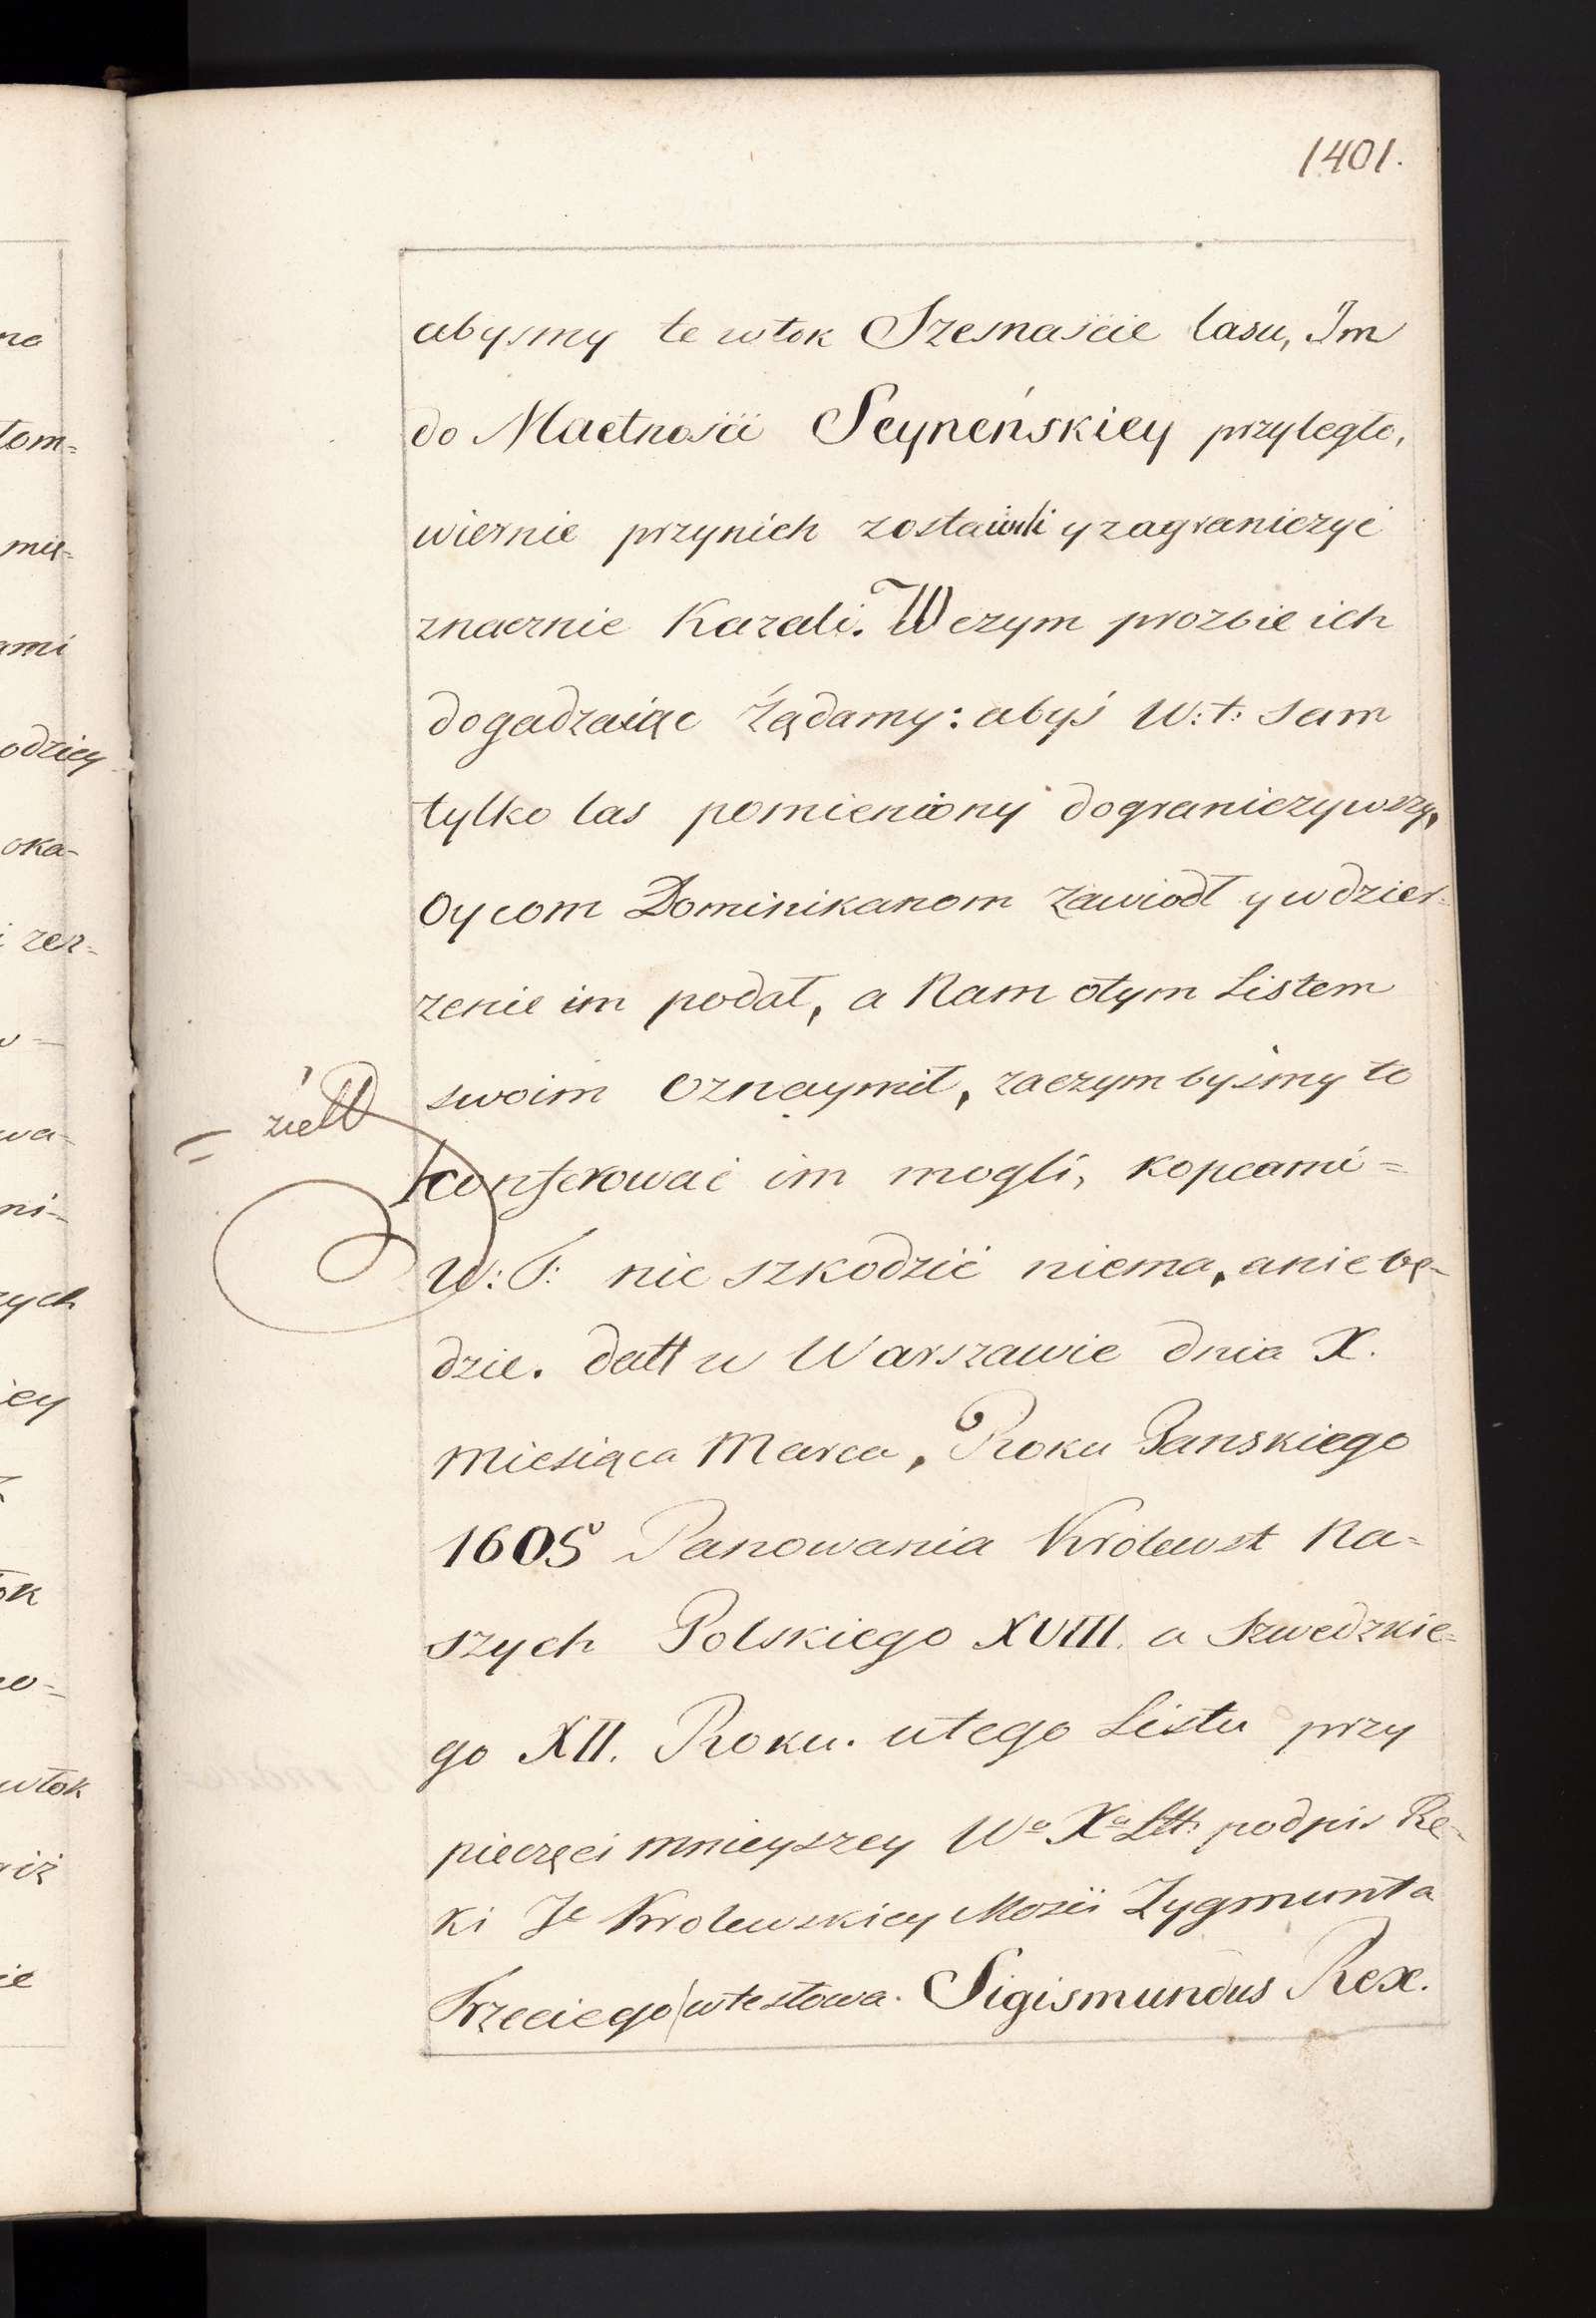 1401.
abysmy te włok Szesnaście lasu, Im
do Maetności Seyneńskiey przyległe,
wiernie przynich zostawili y zagraniczyć
znacznie Kazali. W czym prozbie ich
dogadzaiąc Żądamy: abyś W: t: sam
tylko las pomieniony dograniczywszy,
Oycom Dominikanom zawiodł y w dzier-
zenie im podał, a Nam otym Listem
swoim Oznaymił, zaczym byśmy to
konferować im mogli, kopcami =
W: T: nic szkodzić niema, anie bę-
dzie. datt w Warszawie dnia X.
Miesiąca Marca, Roku Panskiego
1605 Panowania Królewst Na-
szych Polskiego XVIII. a Szwedzkie-
go XII. Roku. utego Listu przy
pieczęci mnieyszey Wº Xª Litt: podpis Rę-
ki Je Krolewskiey Mości Zygmunta
Trzeciego w te słowa. Sigismundus Rex.
na
łom=
mię-
ami
odziey
oka-
wa-
ni-
rych
iey
ok
włok
ie